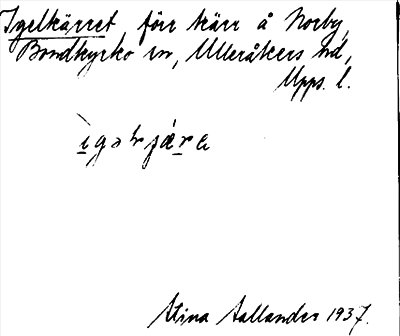 Igelkärret, förr kärr å Norby,
Bondkyrko sn, Ulleråkers hd,
Upps. l.
ìgəkjǽra
Stina Aallander 1937.